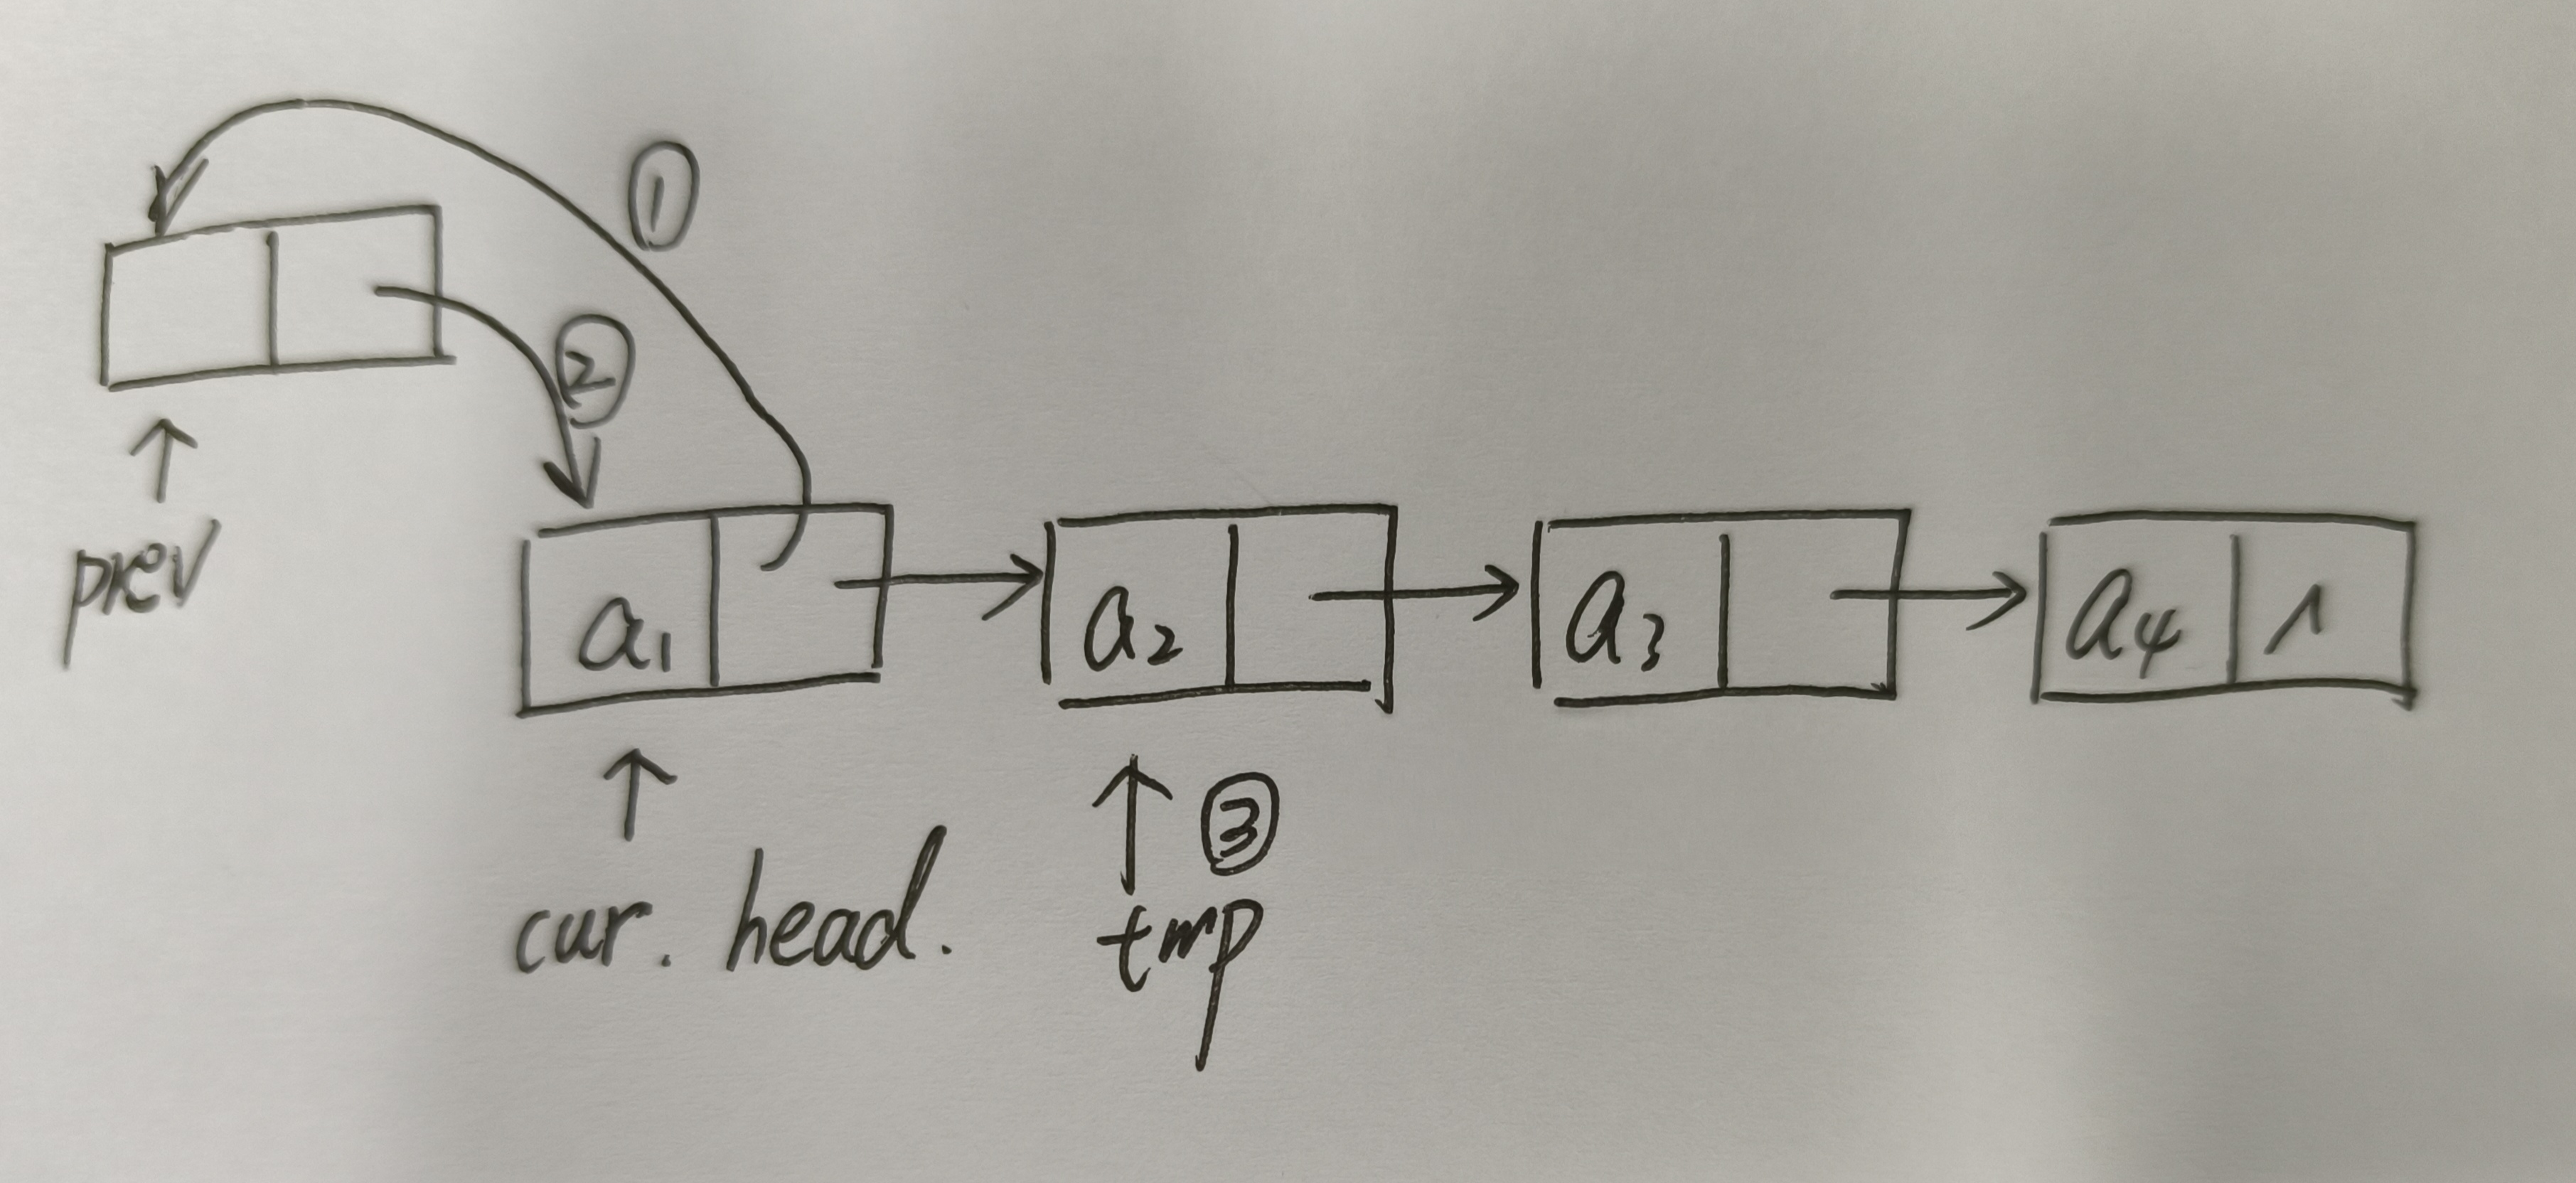 ①
②
prev
a₁ a₂ a₃ a₄ ∧
③
cur. head. tmp